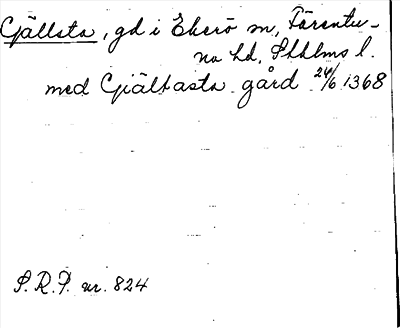 Gjällsta, gd i Ekerö sn, Färentu-
na hd, Sthlms l.
med Giältasta gård 24/6 1368
S.R.P. nr. 824